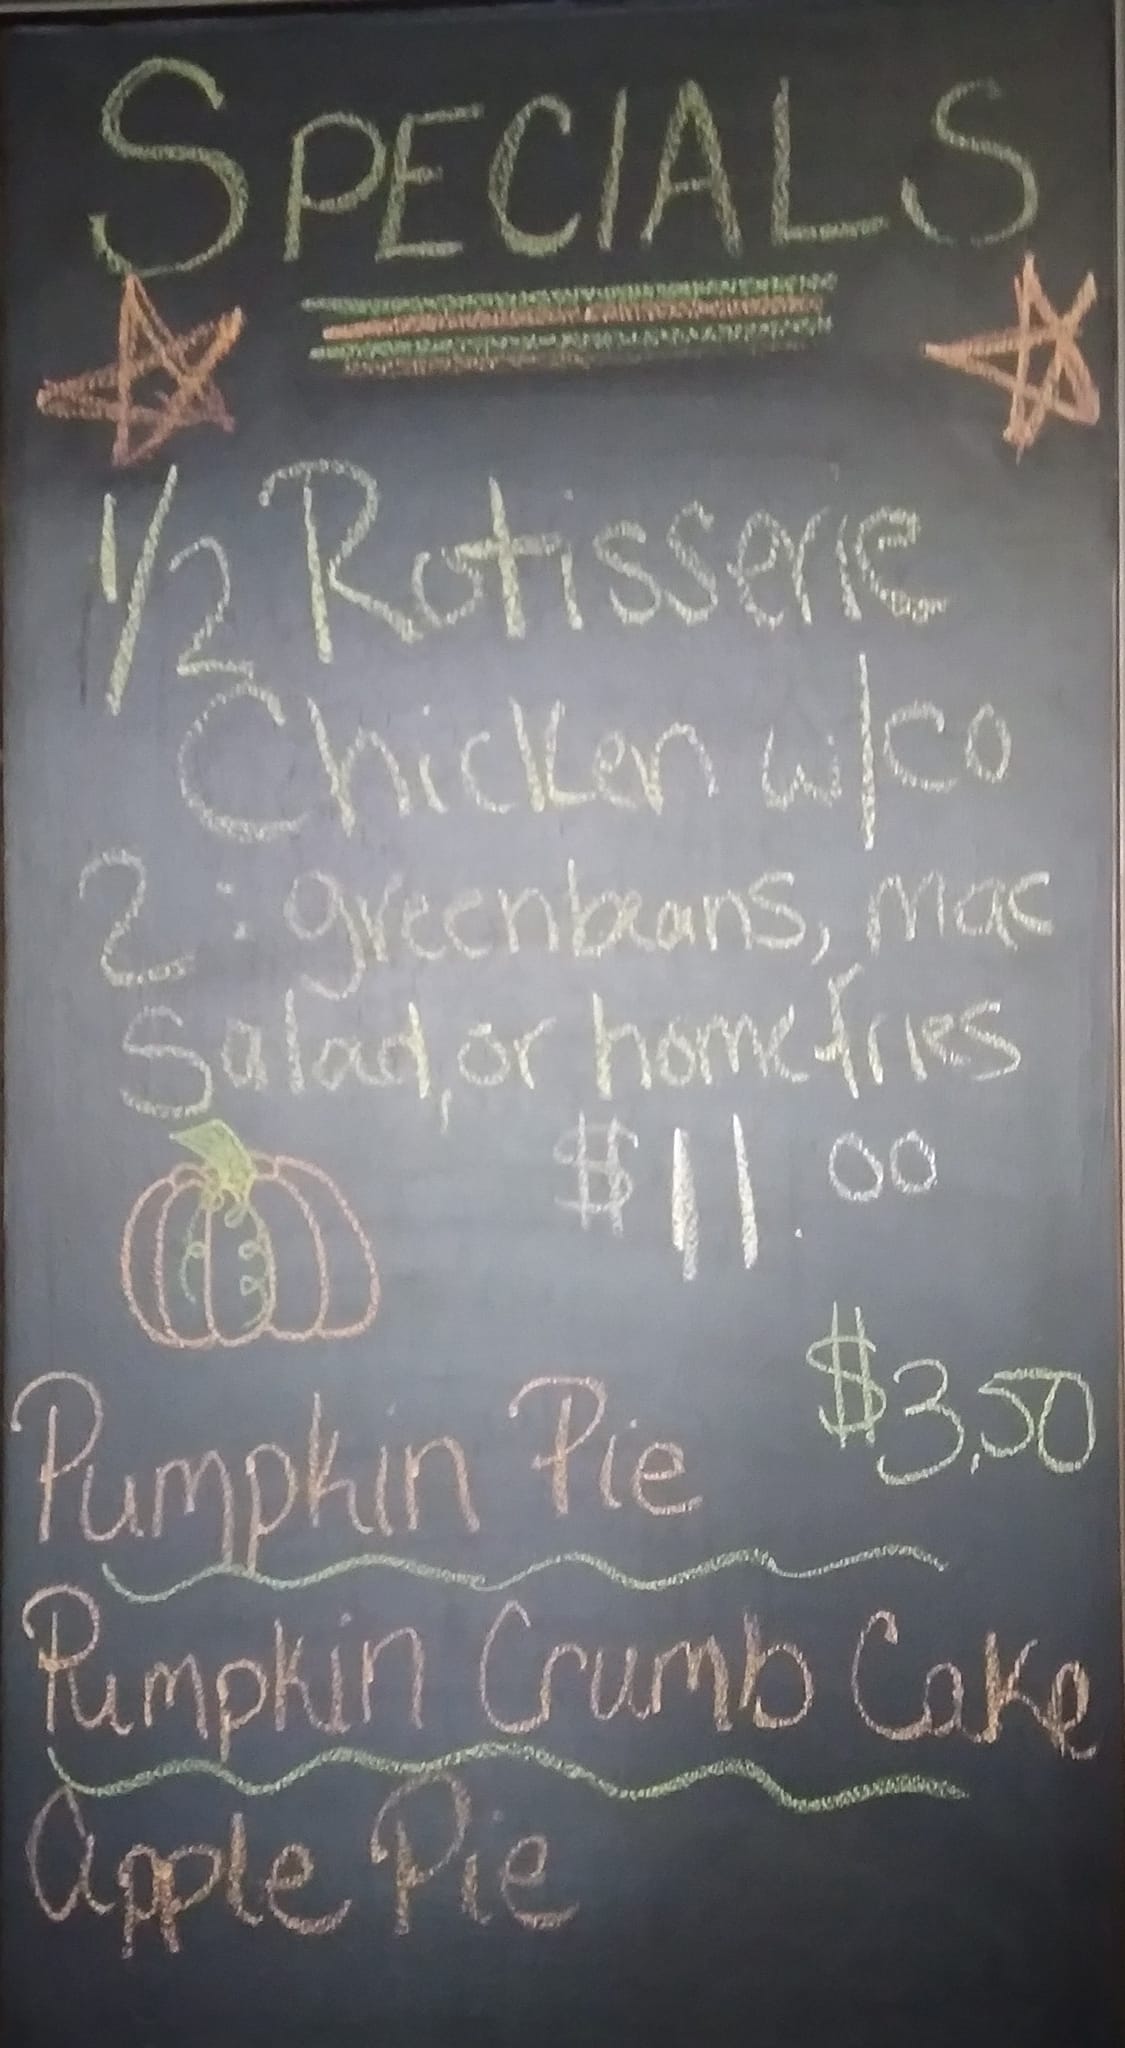 SPECIALS
1/2 Rotisserie
Chicken w/co
2 : greenbeans, mac
Salad, or homefries
$11.00
$3.50
Pumpkin Pie
Pumpkin Crumb Cake
Apple Pie